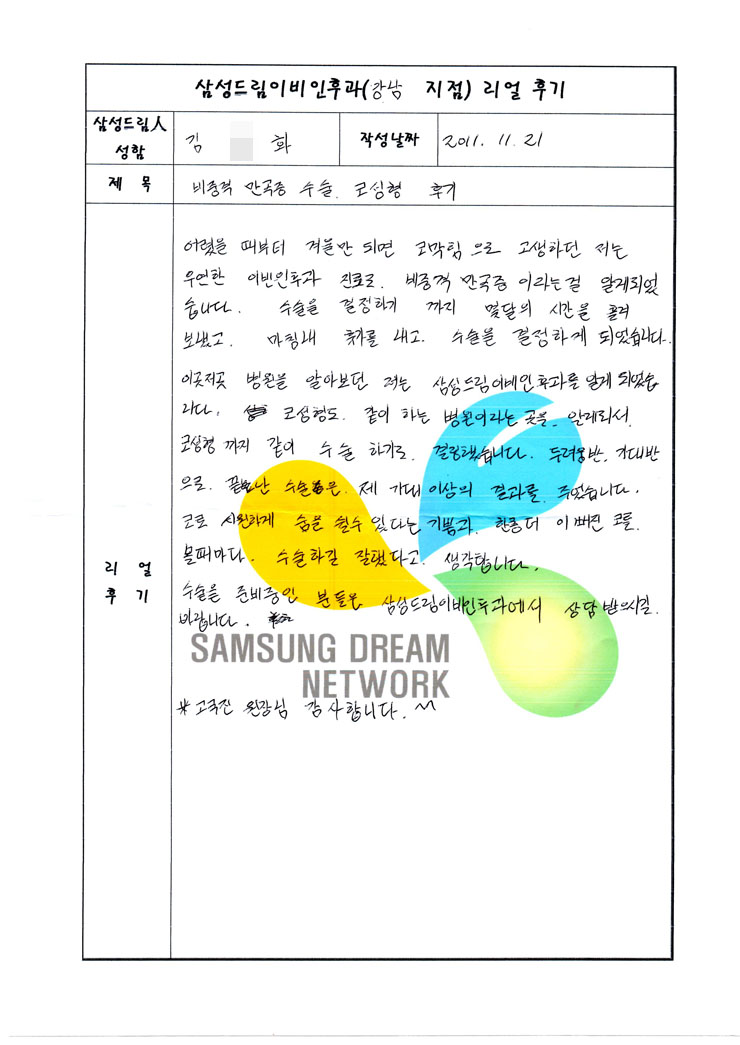 삼성드림이비인후과(강남 지점) 리얼 후기
삼성드림人
성함
김 화
작성날짜
2011. 11. 21
제 목
비중격 만곡증 수술. 코성형 후기
리 얼
후 기
어렸을 때부터 겨울만 되면 코막힘 으로 고생하던 저는
우연한 이빈인후과 진료로. 비중격 만곡증 이라는걸 알게되었
습니다. 수술을 결정하기 까지 몇달의 시간을 흘려
보냈고. 마침내 휴가를 내고. 수술을 결정하게 되었습니다.
이곳저곳 병원을 알아보던 저는 삼성드림이비인후과를 알게 되었습
니다. 코성형도. 같이 하는 병원이라는 곳을. 알게되서.
코성형 까지 같이 수술 하기로. 결정했습니다. 두려움반. 기대반
으로. 끝난 수술은. 제 기대 이상의 결과를. 주었습니다.
코로 시원하게 숨을 쉴수 있다는 기쁨과. 한층더 이뻐진 코를.
볼때마다. 수술하길 잘했다고. 생각합니다.
수술을 준비중인 분들은 삼성드림이비인후과에서 상담 받으시길.
바랍니다.
SAMSUNG DREAM
NETWORK
* 고국진 원장님 감사합니다. ^^